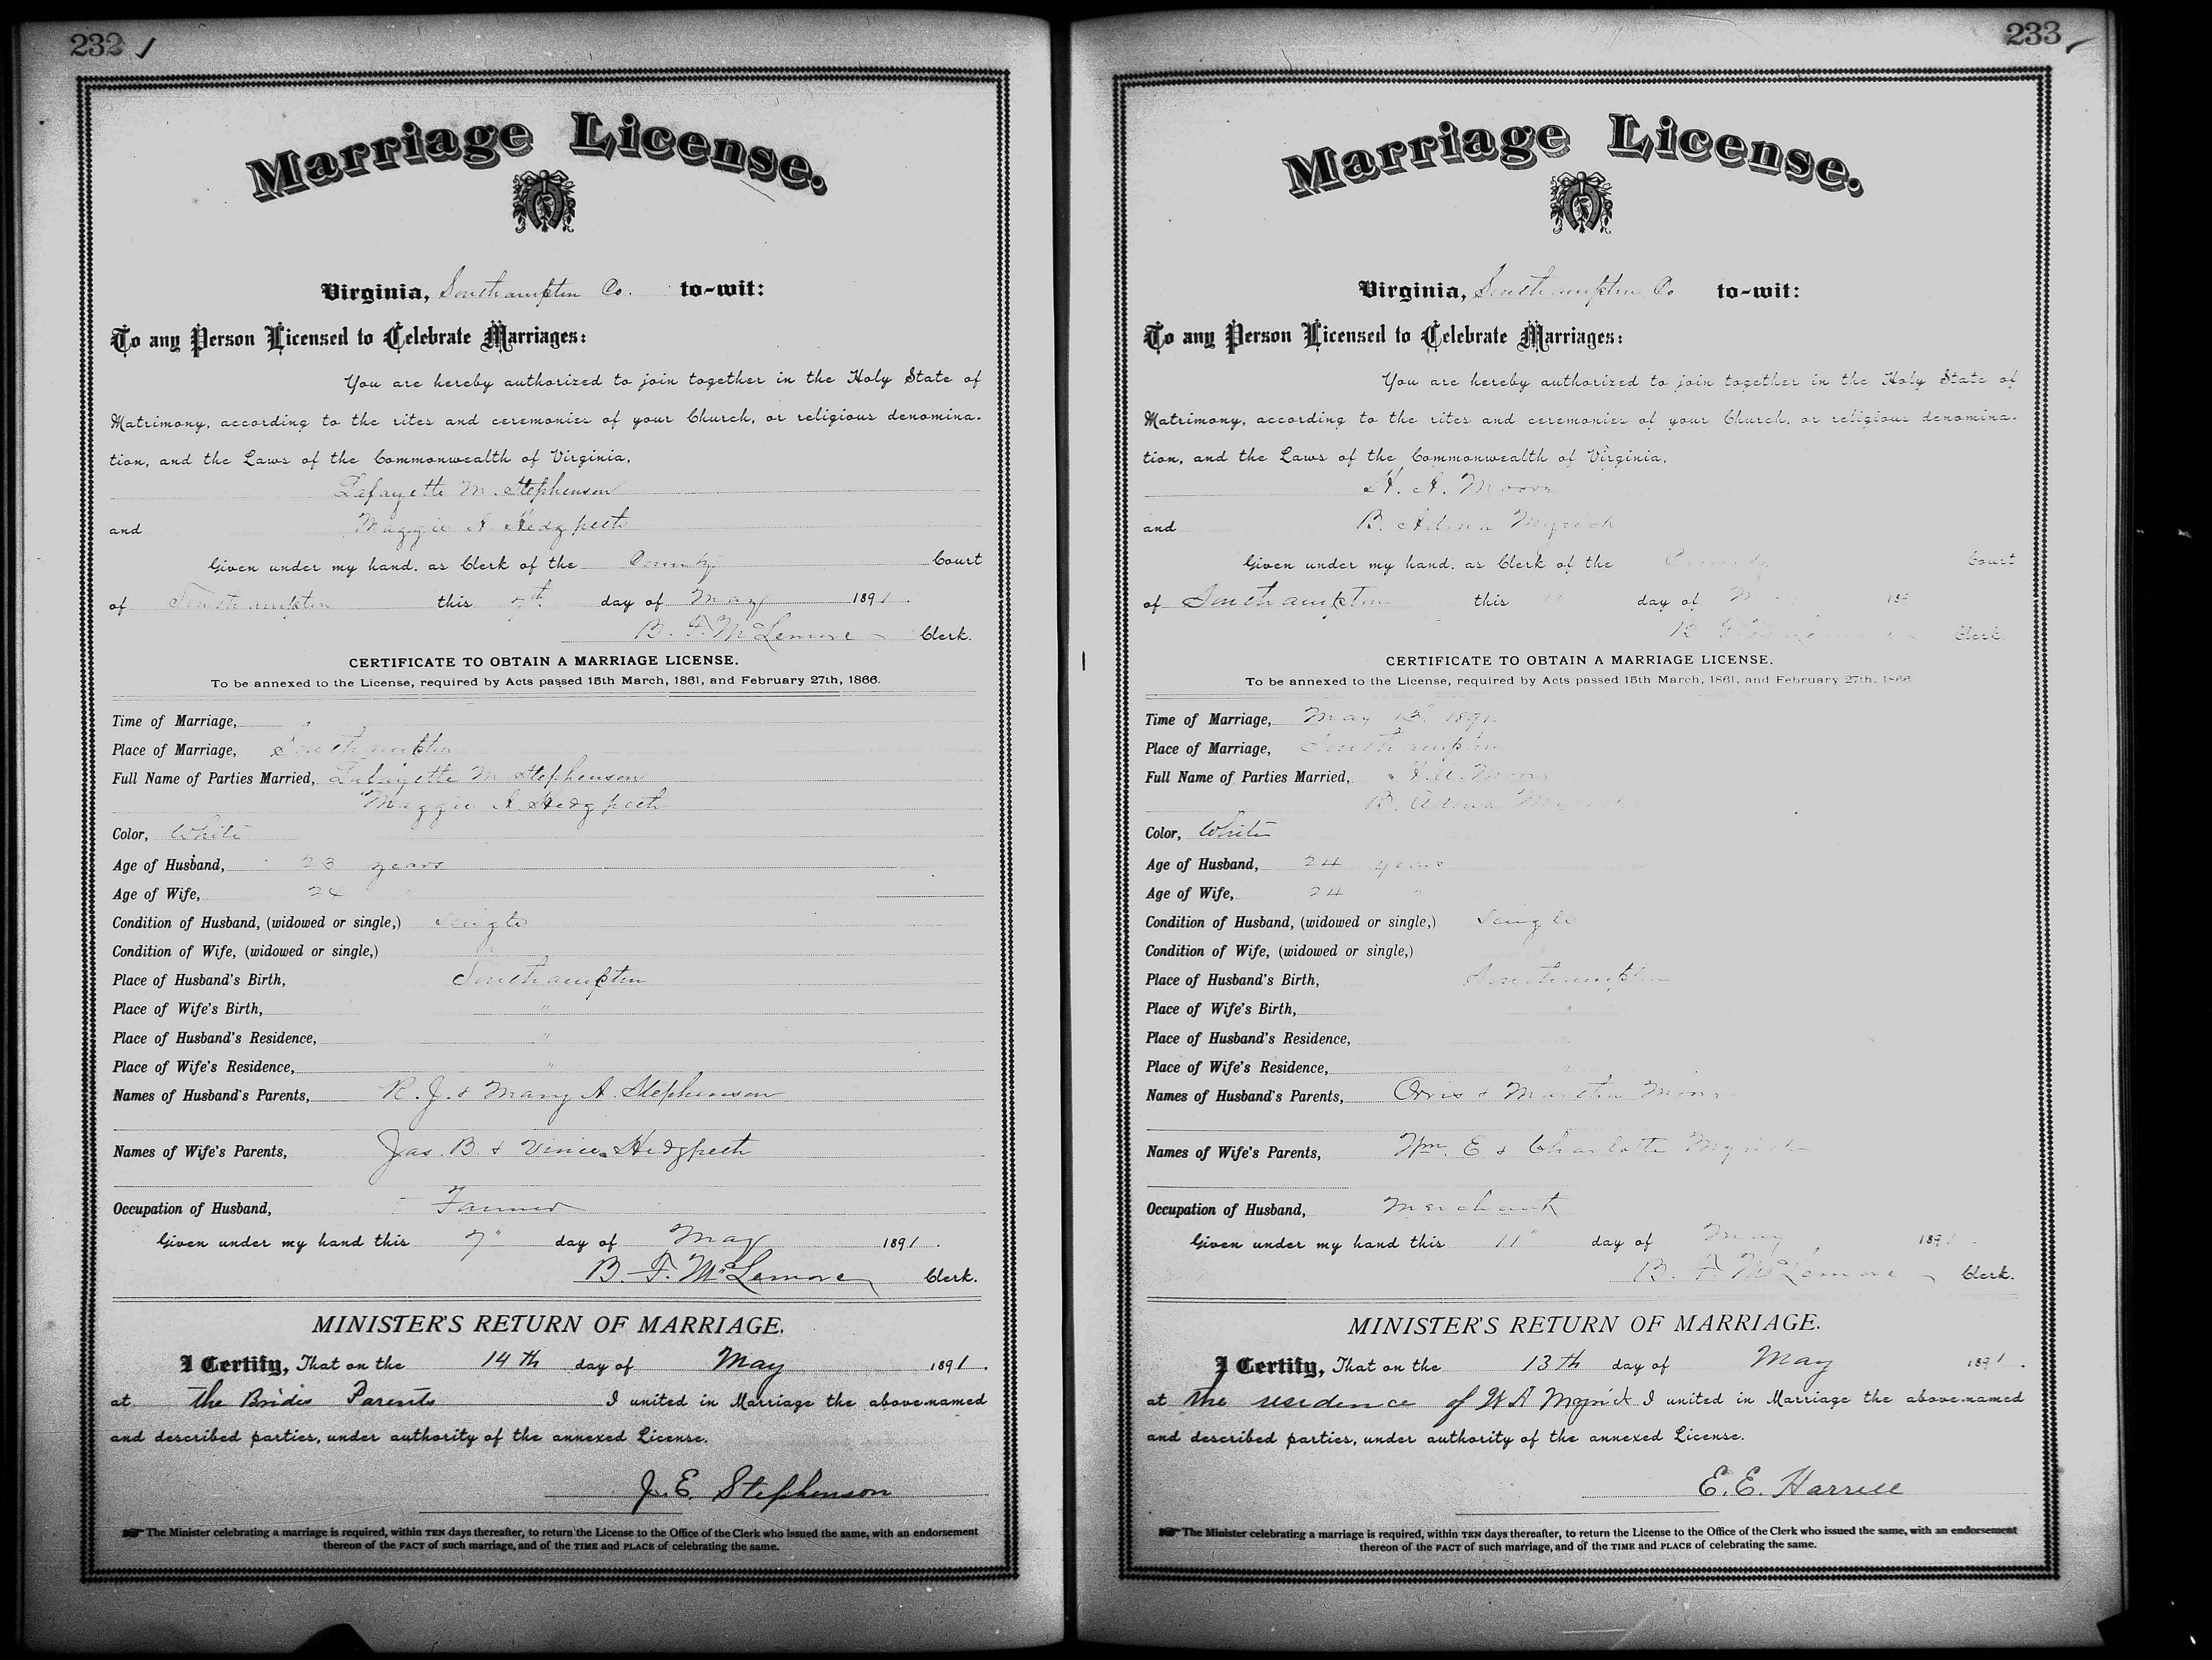 232
Marriage License.
Virginia, Southampton Co. to-wit:
To any Person Licensed to Celebrate Marriages:
You are hereby authorized to join together in the Holy State of
Matrimony, according to the rites and ceremonies of your Church, or religious denomina-
tion, and the Laws of the Commonwealth of Virginia,
Lafayette M. Stephenson
and Maggie A. Hedgpeth
Given under my hand, as Clerk of the County Court
of Southampton this 7th day of May 1891.
B. F. McLemore Clerk.
CERTIFICATE TO OBTAIN A MARRIAGE LICENSE.
To be annexed to the License, required by Acts passed 15th March, 1861, and February 27th, 1866.
Time of Marriage,
Place of Marriage, Southampton
Full Name of Parties Married, Lafayette M Stephenson
Maggie A. Hedgpeth
Color, White
Age of Husband, 23 years
Age of Wife, 24 "
Condition of Husband, (widowed or single,) Single
Condition of Wife, (widowed or single,)
Place of Husband's Birth, Southampton
Place of Wife's Birth, "
Place of Husband's Residence, "
Place of Wife's Residence, "
Names of Husband's Parents, R. J. & Mary A. Stephenson
Names of Wife's Parents, Jas. B. & Vinie Hedgpeth
Occupation of Husband, Farmer
Given under my hand this 7" day of May 1891.
B. F. McLemore Clerk.
MINISTER'S RETURN OF MARRIAGE.
I Certify, That on the 14th day of May 1891.
at the Brides Parents I united in Marriage the above-named
and described parties, under authority of the annexed License.
J. E. Stephenson
The Minister celebrating a marriage is required, within TEN days thereafter, to return the License to the Office of the Clerk who issued the same, with an endorsement
thereon of the FACT of such marriage, and of the TIME and PLACE of celebrating the same.
233
Marriage License.
Virginia, Southampton Co to-wit:
To any Person Licensed to Celebrate Marriages:
You are hereby authorized to join together in the Holy State of
Matrimony, according to the rites and ceremonies of your Church, or religious denomina-
tion, and the Laws of the Commonwealth of Virginia,
H. A.
and B. Myrick
Given under my hand, as Clerk of the County Court
of Southampton this 11 day of May 189
B. F. McLemore Clerk
CERTIFICATE TO OBTAIN A MARRIAGE LICENSE.
To be annexed to the License, required by Acts passed 15th March, 1861, and February 27th, 1866
Time of Marriage, May 13" 1891
Place of Marriage, Southampton
Full Name of Parties Married, H. A.
B. Myrick
Color, White
Age of Husband, 24 years
Age of Wife, 24 "
Condition of Husband, (widowed or single,) Single
Condition of Wife, (widowed or single,)
Place of Husband's Birth, Southampton
Place of Wife's Birth, "
Place of Husband's Residence,
Place of Wife's Residence, "
Names of Husband's Parents, Orris & Martha
Names of Wife's Parents, Wm. E & Charlotte Myrick
Occupation of Husband, Merchant
Given under my hand this 11" day of May 189
B. F. McLemore Clerk.
MINISTER'S RETURN OF MARRIAGE.
I Certify, That on the 13th day of May 1891.
at the residence of W A Myrick I united in Marriage the above-named
and described parties, under authority of the annexed License.
E. E. Harrell
The Minister celebrating a marriage is required, within TEN days thereafter, to return the License to the Office of the Clerk who issued the same, with an endorsement
thereon of the FACT of such marriage, and of the TIME and PLACE of celebrating the same.